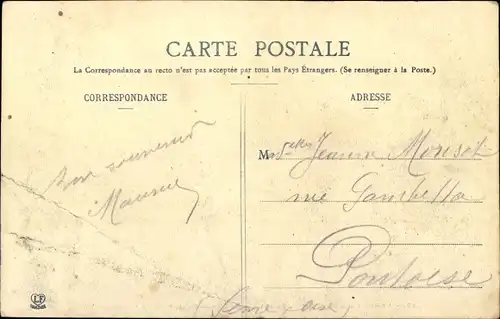 CARTE POSTALE
La Correspondance au recto n'est pas acceptée par tous les Pays Étrangers. (Se renseigner à la Poste.)
CORRESPONDANCE
ADRESSE
Bon souvenir
Maurice
Mselles Jeanne
rue Gambetta
Pontoise
Seine & Oise
LF